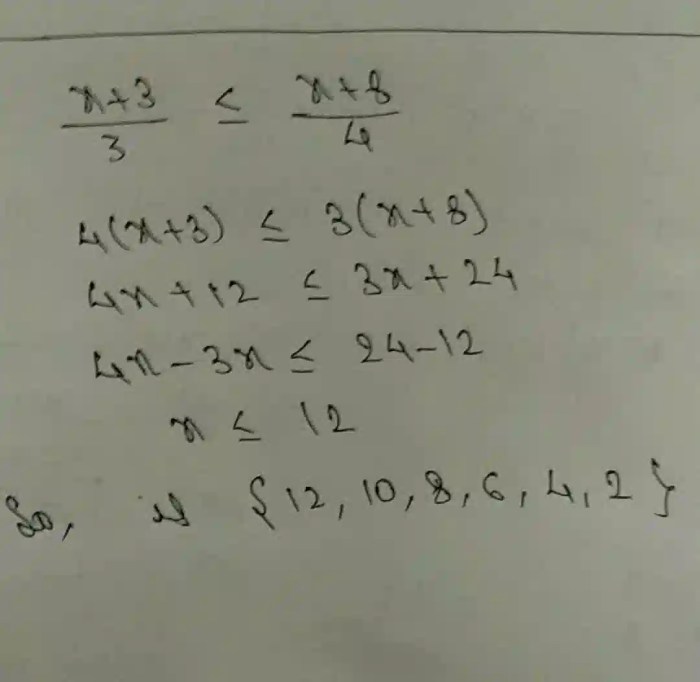 x+3/3 ≤ x+8/4
4(x+3) ≤ 3(x+8)
4x+12 ≤ 3x+24
4x-3x ≤ 24-12
x ≤ 12
So, is {12, 10, 8, 6, 4, 2}